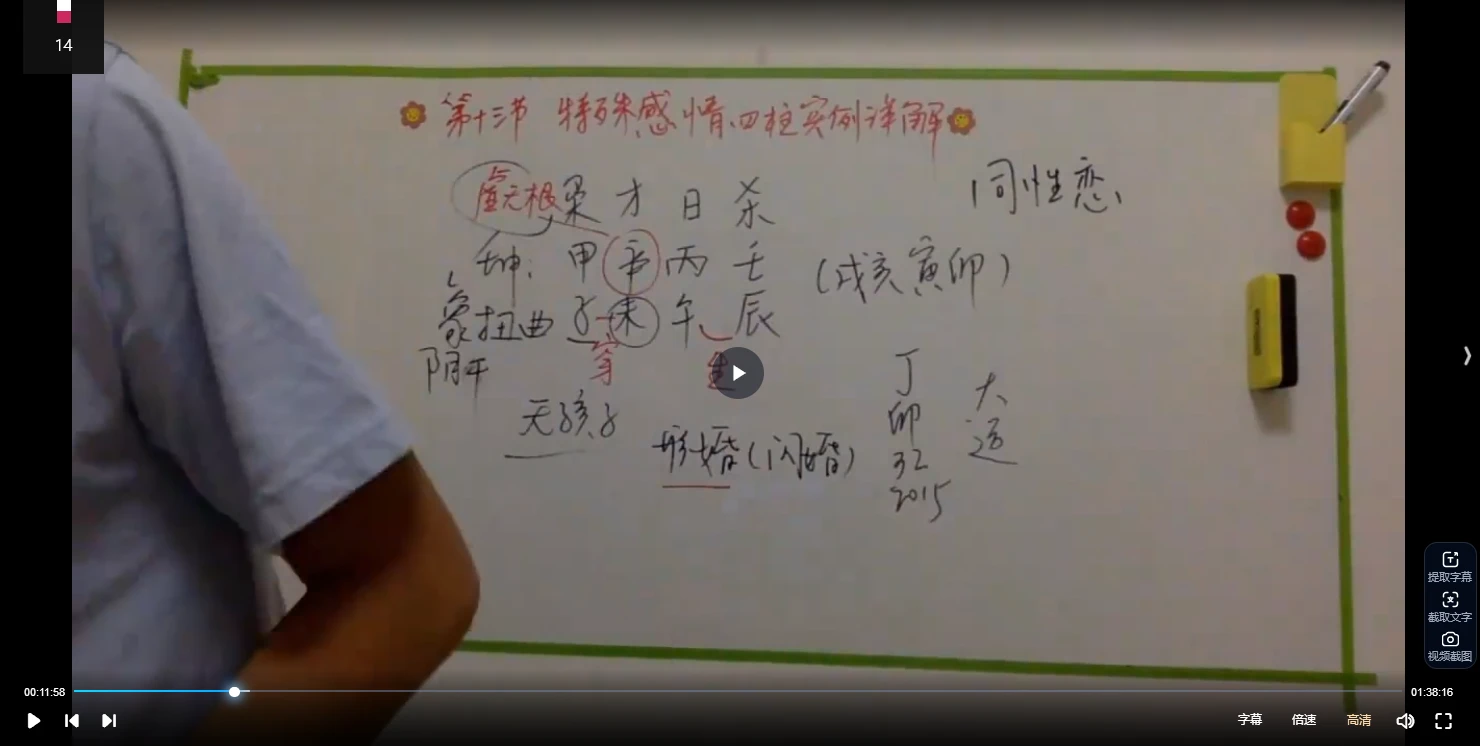 14
第十三节 特殊感情四柱实例详解
虚无根 枭 才 日 杀
同性恋
坤: 甲 辛 丙 壬 (戌亥寅卯)
象扭曲 子 未 午 辰
阴干 穿
无孩子
形婚(闪婚)
丁卯 32 2015
大运
提取字幕
截取文字
视频截图
00:11:58
01:38:16
字幕 倍速 高清